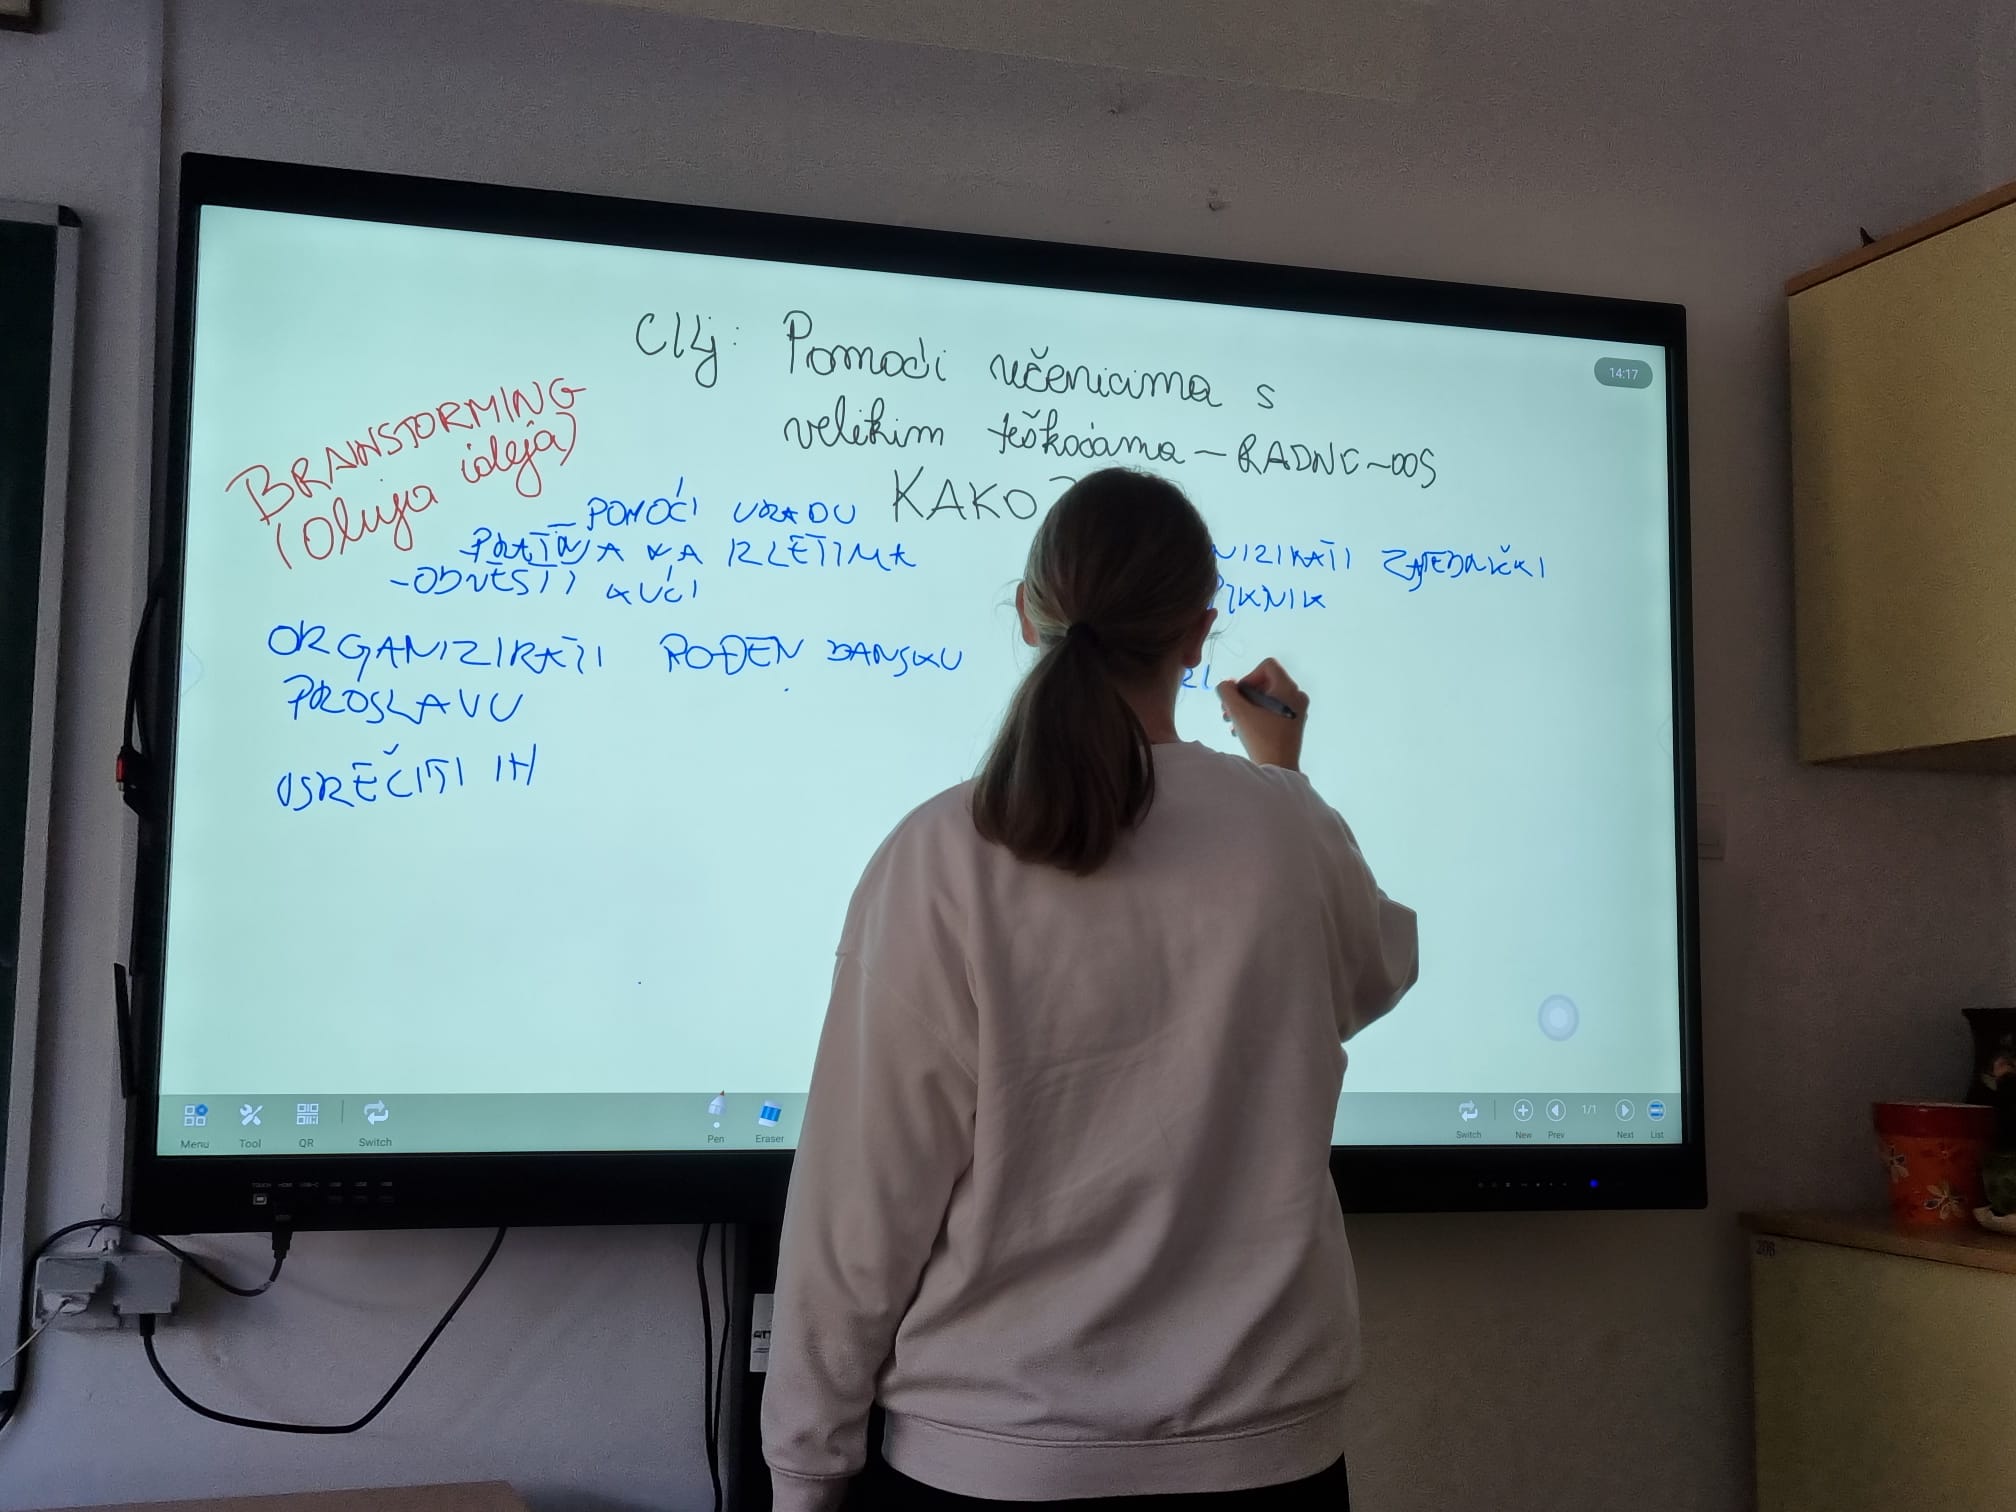 Cilj: Pomoći učenicima s
velikim teškoćama - RADNE-OOS
KAKO?
BRAINSTORMING
(oluja ideja)
- POMOĆI U RADU
- PRATNJA NA IZLETIMA
- ODVESTI KUĆI
ORGANIZIRATI ROĐENDANSKU
PROSLAVU
USREČITI IH
NIZIRATI ZAJEDNIČKI
PIKNIK
14:17
Menu
Tool
QR
Switch
Pen
Eraser
Switch
New
Prev
1/1
Next
List
TOUCH
HDMI
USB-C
USB
USB
USB
208